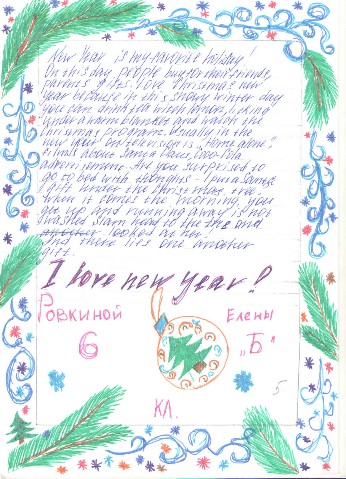 New Year is my favorite holiday!
On this day people buy for their friends,
parents gifts. I love Christmas new
year because in this snowy winter day
you can drink tea with lemon, lying
under a warm blanket and watch the
Christmas program. Usually in the
new year on television is „Home alone",
films about Santa Claus, Coca-Cola
advertisement. Are you surprised to
go to bed with midnights - I put a Santa
gift under the Christmas tree.
when it comes the morning, you
get up and running away is not
washed slam head to the tree and
looked at her.
And there lies one another
gift.
I love new year!
Ровкиной Елены
6 „Б"
кл.
5